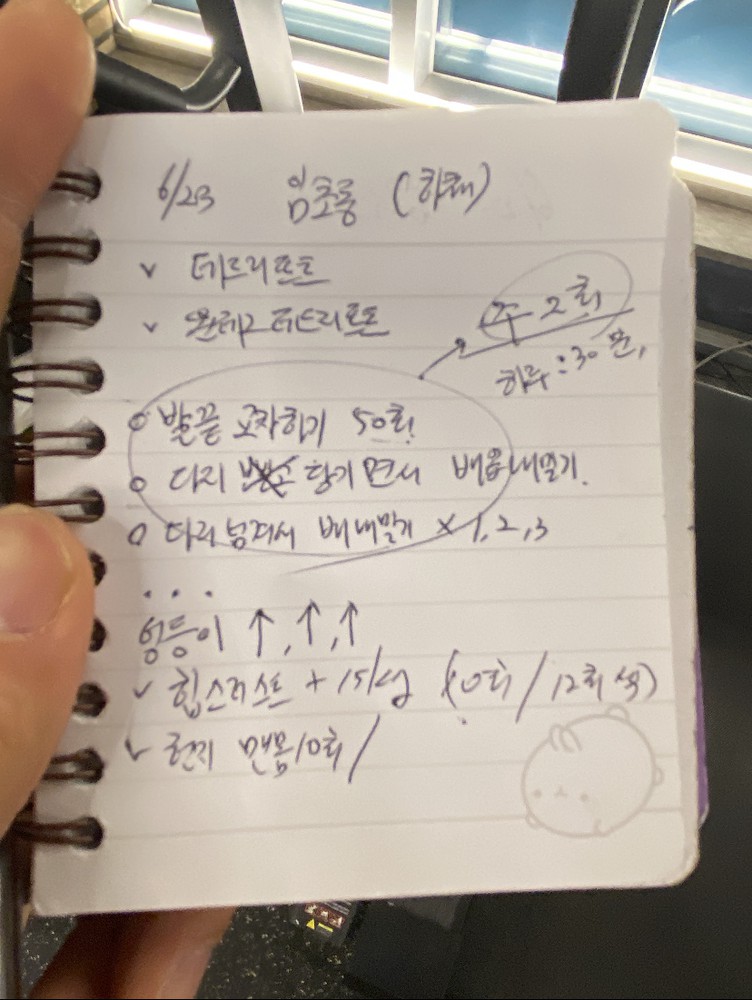 6/23 임초롱 (하체)
v 데드리프트
v 원레그 데드리프트
주 2회
하루 : 30분,
o 발끝 교차하기 50회!
o 다지 당기면서 배웅내밀기.
o 다리 넘겨서 배내밀기 x 1, 2, 3
...
엉등이 ↑, ↑, ↑
v 힙스러스트 + 15kg (10회 / 12회씩)
v 런지 맨몸 10회 /